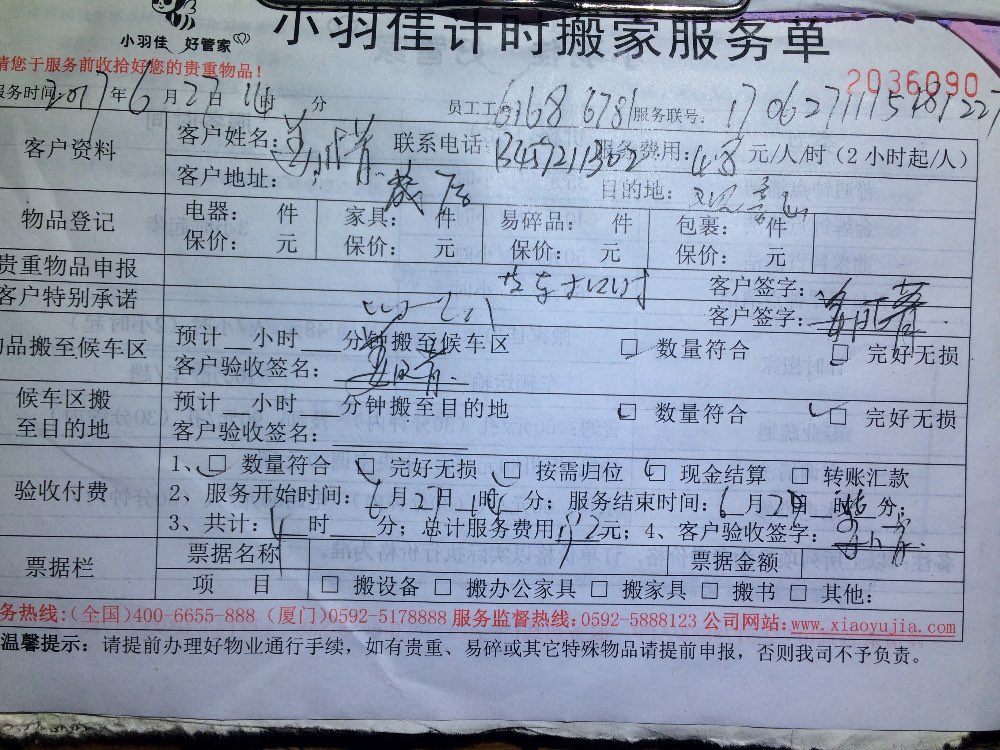 小羽佳 好管家
小羽佳计时搬家服务单
请您于服务前收拾好您的贵重物品!
2036090
服务时间: 2017年6月27日14时 分 员工工 6168 6781 服务联号:
客户资料
客户姓名: 联系电话 服务费用: 48 元/人/时 (2小时起/人)
客户地址: 目的地:
物品登记
电器: 件 家具: 件 易碎品: 件 包裹: 件
保价: 元 保价: 元 保价: 元 保价: 元
贵重物品申报 客户签字:
客户特别承诺 客户签字:
物品搬至候车区
预计__小时___分钟搬至候车区 □ 数量符合 □ 完好无损
客户验收签名:
候车区搬至目的地
预计__小时___分钟搬至目的地 □ 数量符合 □ 完好无损
客户验收签名:
验收付费
1、□ 数量符合 □ 完好无损 □ 按需归位 □ 现金结算 □ 转账汇款
2、服务开始时间: 6月27日 时 分; 服务结束时间: 6月27日 时 分;
3、共计: 4时 分; 总计服务费用 192元; 4、客户验收签字:
票据栏
票据名称 票据金额
项 目 □ 搬设备 □ 搬办公家具 □ 搬家具 □ 搬书 □ 其他:
服务热线:(全国)400-6655-888 (厦门)0592-5178888 服务监督热线:0592-5888123 公司网站:www.xiaoyujia.com
温馨提示: 请提前办理好物业通行手续, 如有贵重、易碎或其它特殊物品请提前申报, 否则我司不予负责。